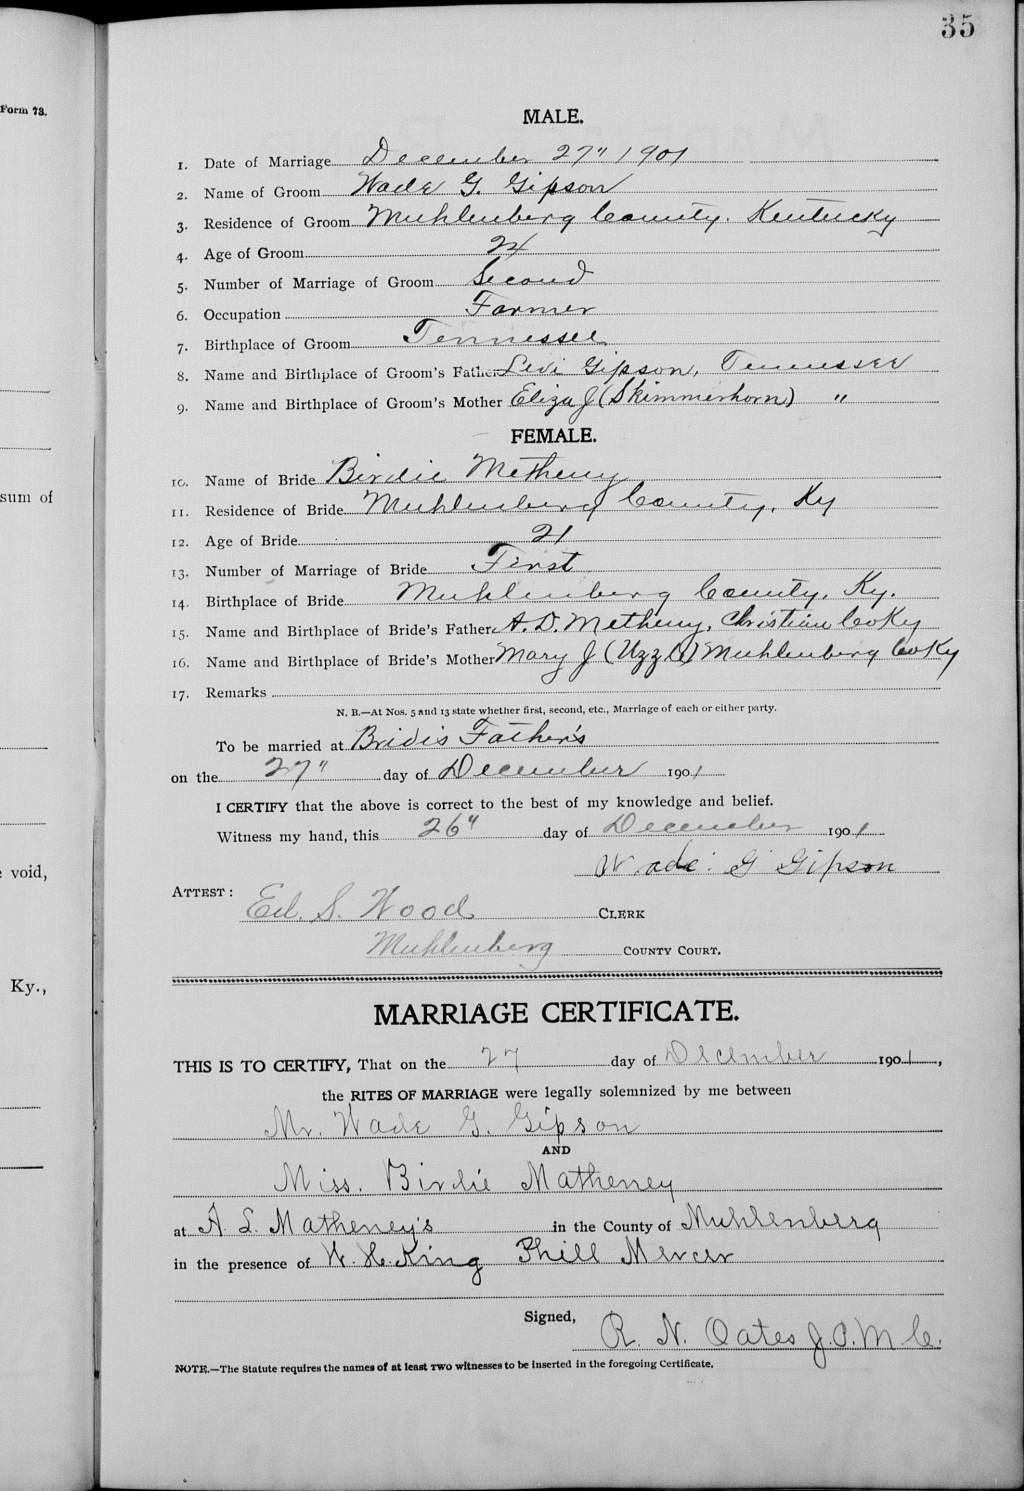 35
Form 73.
MALE.
1. Date of Marriage December 27" 1901
2. Name of Groom Wade G. Gipson
3. Residence of Groom Muhlenberg County. Kentucky
4. Age of Groom 24
5. Number of Marriage of Groom Second
6. Occupation Farmer
7. Birthplace of Groom Tennessee
8. Name and Birthplace of Groom's Father Levi Gipson, Tennessee
9. Name and Birthplace of Groom's Mother Eliza J (Skimmerhorn) "
FEMALE.
10. Name of Bride Birdie Metheny
sum of
11. Residence of Bride Muhlenberg County, Ky
12. Age of Bride 21
13. Number of Marriage of Bride First
14. Birthplace of Bride Muhlenberg County, Ky.
15. Name and Birthplace of Bride's Father A. D. Metheny, Christian Co Ky
16. Name and Birthplace of Bride's Mother Mary J (Uzzle) Muhlenberg Co Ky
17. Remarks
N. B.—At Nos. 5 and 13 state whether first, second, etc., Marriage of each or either party.
To be married at Bridis Father's
on the 27" day of December 1901
I CERTIFY that the above is correct to the best of my knowledge and belief.
Witness my hand, this 26" day of December 1901
void,
Wade G Gipson
ATTEST:
Ed. S. Wood CLERK
Muhlenberg COUNTY COURT.
Ky.,
MARRIAGE CERTIFICATE.
THIS IS TO CERTIFY, That on the 27 day of December 1901,
the RITES OF MARRIAGE were legally solemnized by me between
Mr. Wade G. Gipson
AND
Miss. Birdie Matheney
at A. L. Matheney's in the County of Muhlenberg
in the presence of W. H. King Phill Mercer
Signed,
R. N. Oates J. P. M. C.
NOTE.—The Statute requires the names of at least two witnesses to be inserted in the foregoing Certificate.